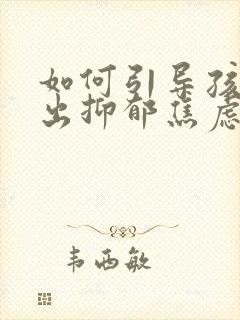 如何引导孩
出抑郁焦虑
韦西敏